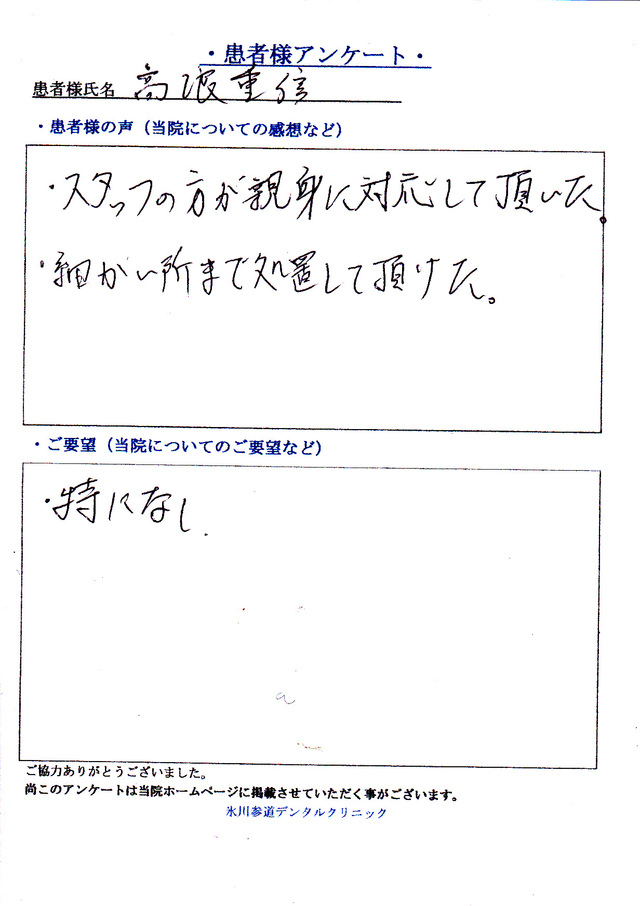 ・患者様アンケート・
患者様氏名 高渡重信
・患者様の声（当院についての感想など）
・スタッフの方が親身に対応して頂いた。
・細かい所まで処置して頂けた。
・ご要望（当院についてのご要望など）
・特になし.
ご協力ありがとうございました。
尚このアンケートは当院ホームページに掲載させていただく事がございます。
氷川参道デンタルクリニック